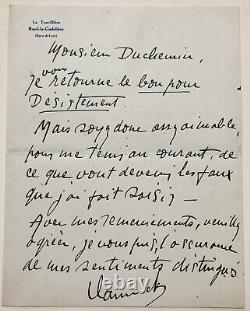 La Tourillière
Rueil-la-Gadelière
(Eure-&-Loir)
Monsieur Duchemin,
vous
je retourne le bon pour
Desistement.
Mais soyez donc assez aimable
pour me tenir au courant, de
ce que vont devenir les faux
que j'ai fait saisir –
Avec mes remerciements, veuillez
agréer, je vous prie, l'assurance
de mes sentiments distingués
Vlaminck